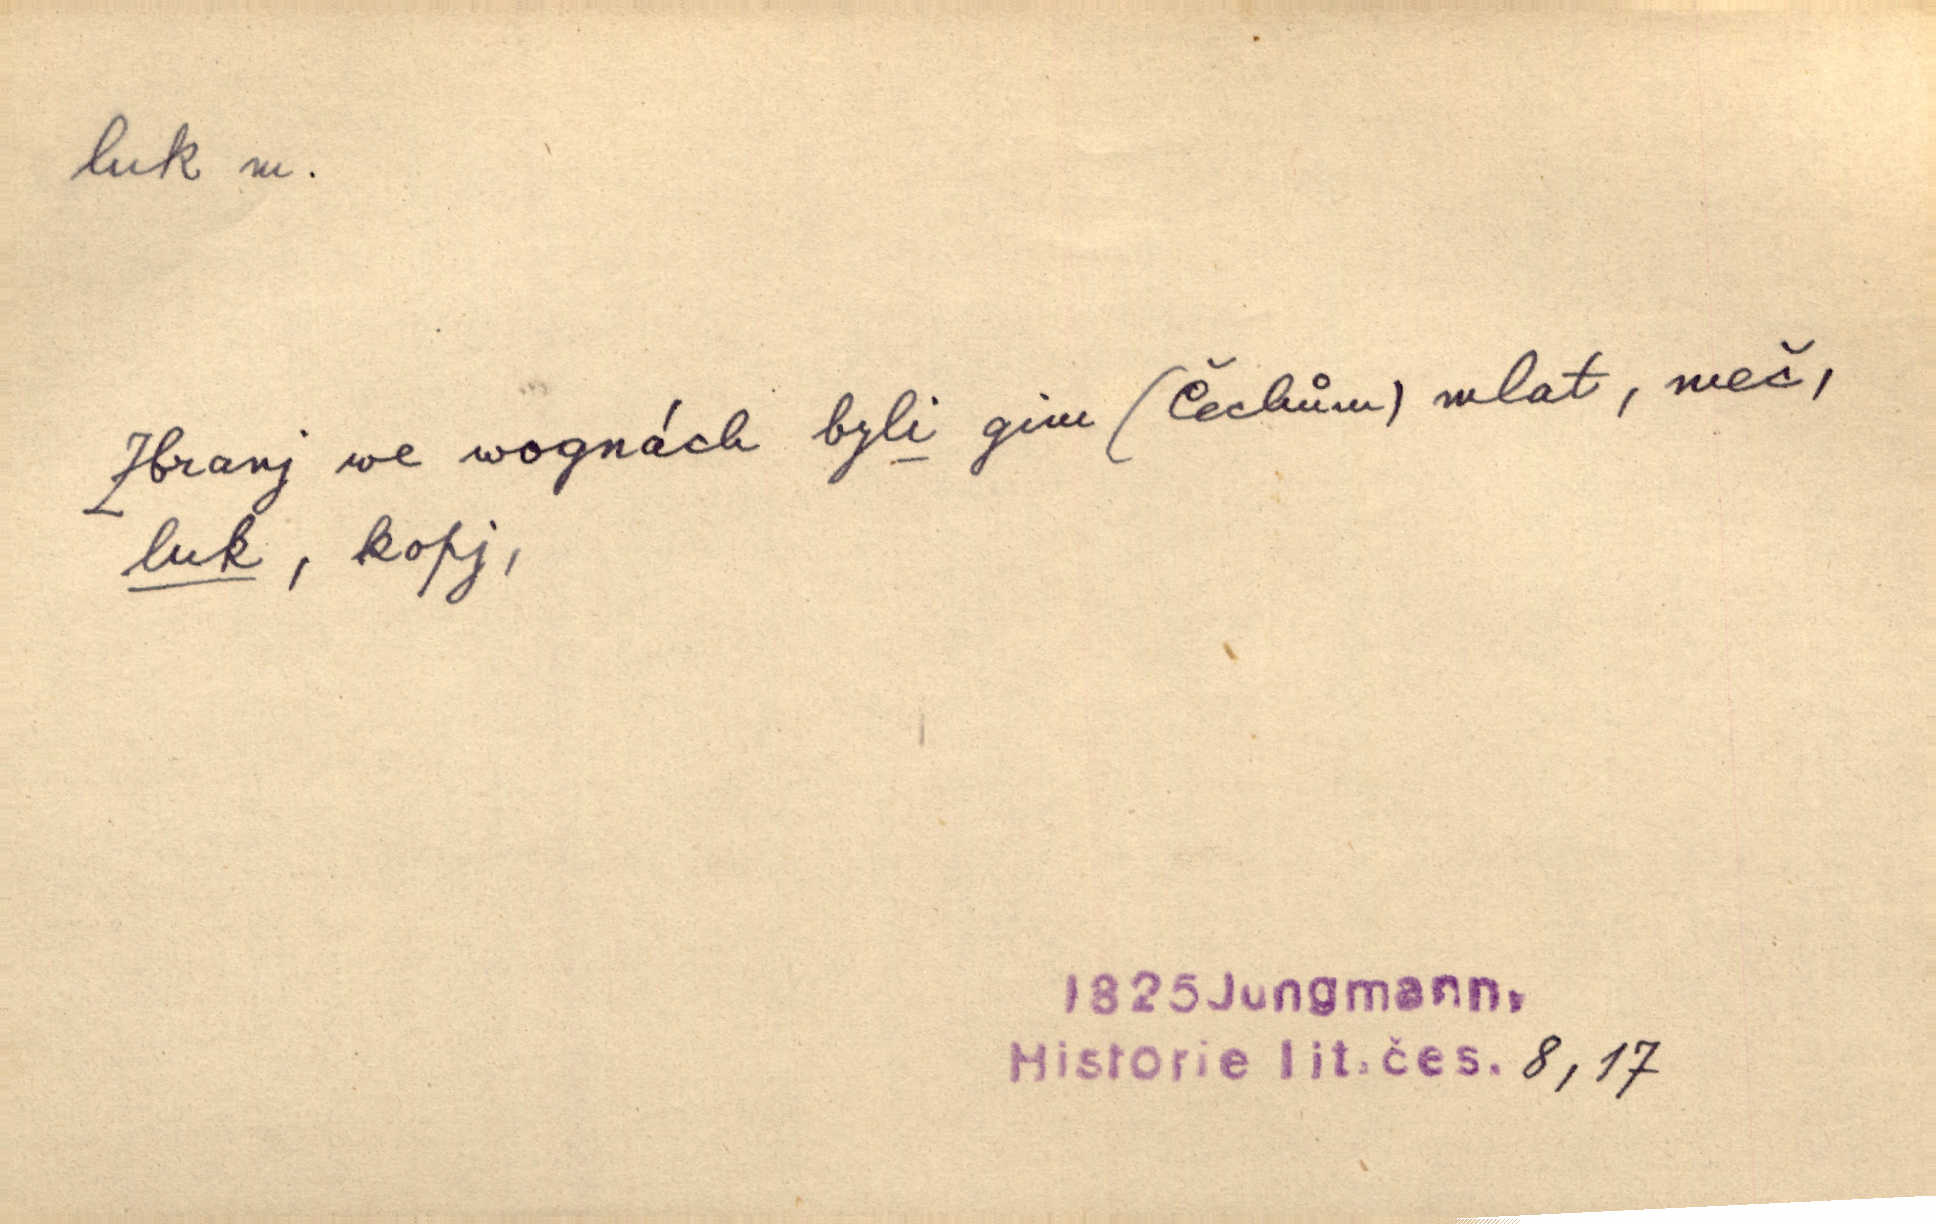 luk m.
Zbranj we wognách byli gim (Čechům) mlat, meč,
luk, kopj,
1825 Jungmann,
Historie lit. čes. 8, 17